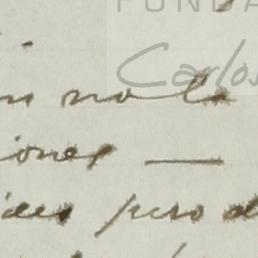 FUNDA
Carlos
no la
iones —
ides pero d